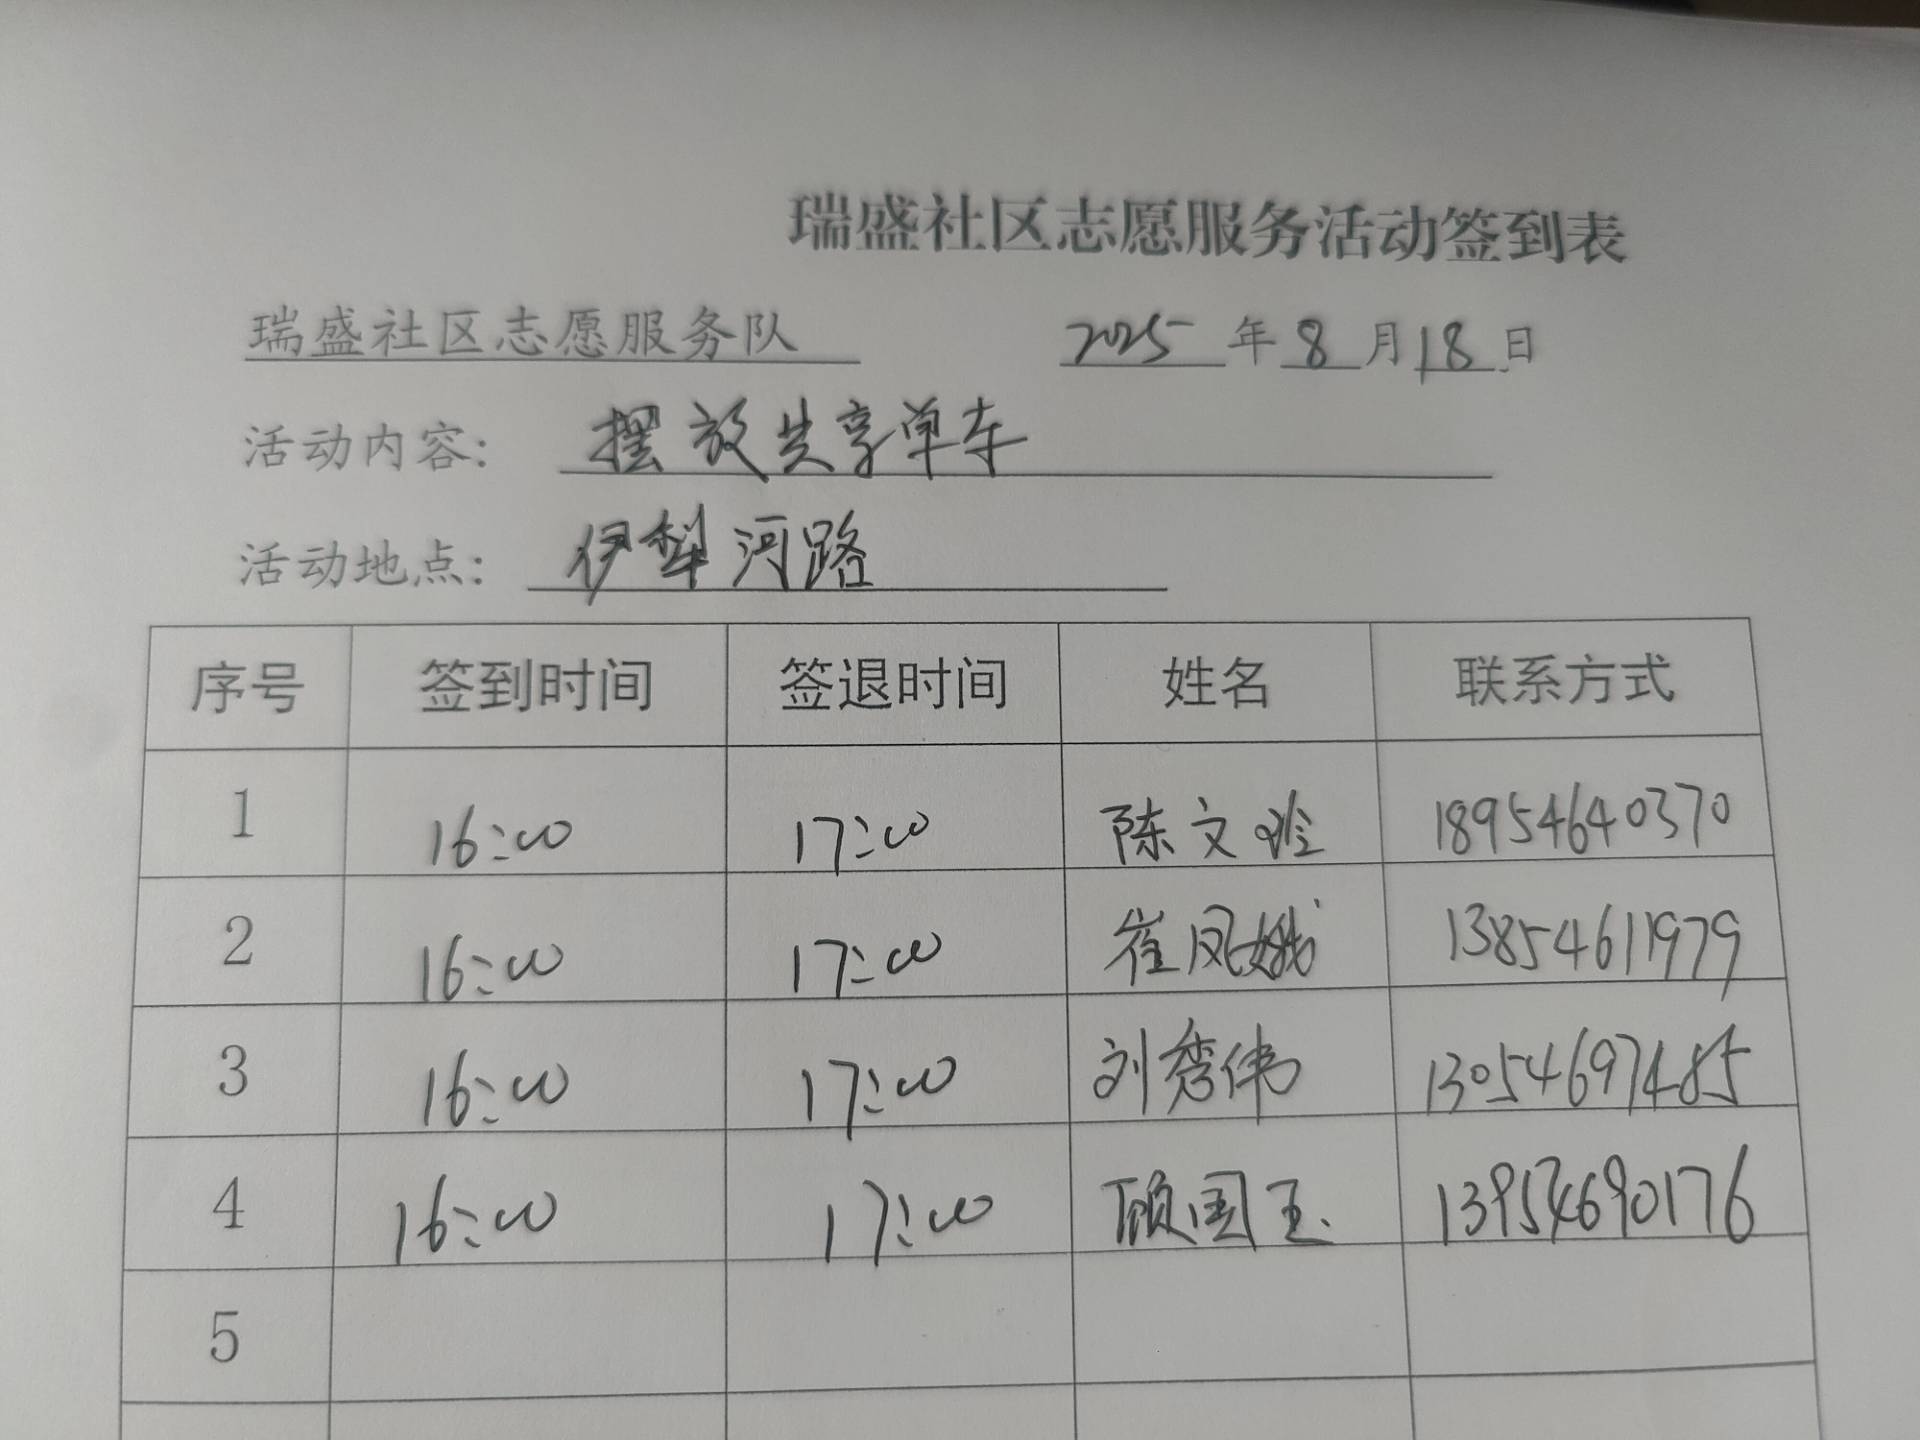 瑞盛社区志愿服务活动签到表
瑞盛社区志愿服务队 2025年8月18日
活动内容: 摆放共享单车
活动地点: 伊犁河路
序号 签到时间 签退时间 姓名 联系方式
1 16:00 17:00 陈文玲 18954640370
2 16:00 17:00 崔凤娥 13854611979
3 16:00 17:00 刘秀伟 13054697485
4 16:00 17:00 顾国玉 13954690176
5